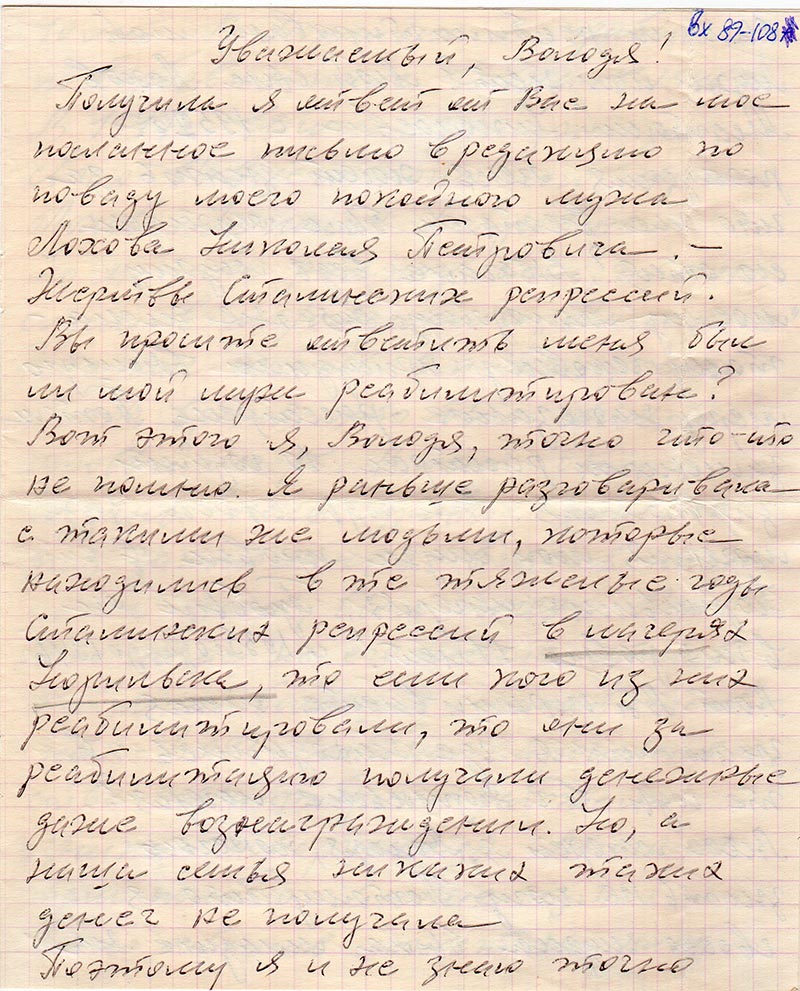 Вх 89-108
Уважаемый, Володя!
Получила я ответ от Вас на мое
посланное письмо в редакцию по
поваду моего покойного мужа
Лохова Николая Петровича. –
Жертвы Сталинских репрессий.
Вы просите ответить меня был
ли мой муж реабилитирован?
Вот этого я, Володя, точно что-то
не помню. Я раньше разговаривала
с такими же людьми, которые
находились в те тяжелые годы
Сталинских репрессий в лагерях
Норильска, то если кого из них
реабилитировали, то они за
реабилитацию получали денежные
даже вознаграждении. Но, а
наша семья никаких таких
денег не получала
Поэтому я и не знаю точно